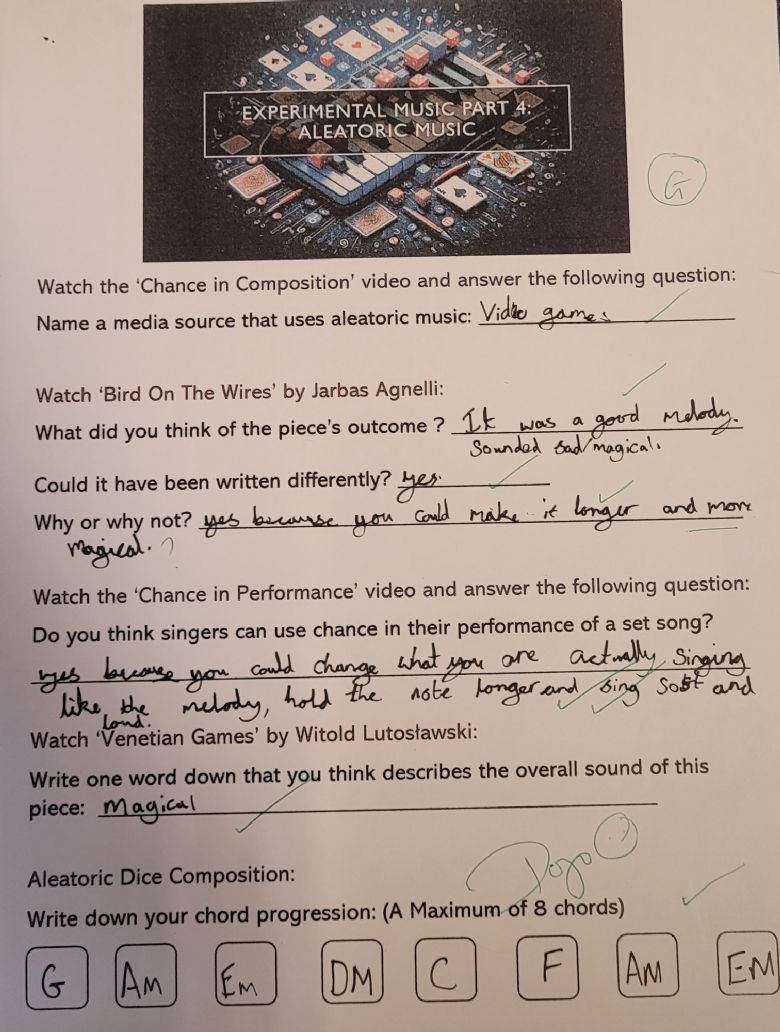 EXPERIMENTAL MUSIC PART 4:
ALEATORIC MUSIC
G
Watch the 'Chance in Composition' video and answer the following question:
Name a media source that uses aleatoric music: Video games
Watch 'Bird On The Wires' by Jarbas Agnelli:
What did you think of the piece's outcome ? It was a good melody.
Sounded sad/magical.
Could it have been written differently? yes.
Why or why not? yes because you could make it longer and more
magical. ?
Watch the 'Chance in Performance' video and answer the following question:
Do you think singers can use chance in their performance of a set song?
yes because you could change what you are actually singing
like the melody, hold the note longer and sing soft and
loud.
Watch 'Venetian Games' by Witold Lutosławski:
Write one word down that you think describes the overall sound of this
piece: Magical
Dojo
Aleatoric Dice Composition:
Write down your chord progression: (A Maximum of 8 chords)
G Am Em DM C F AM EM